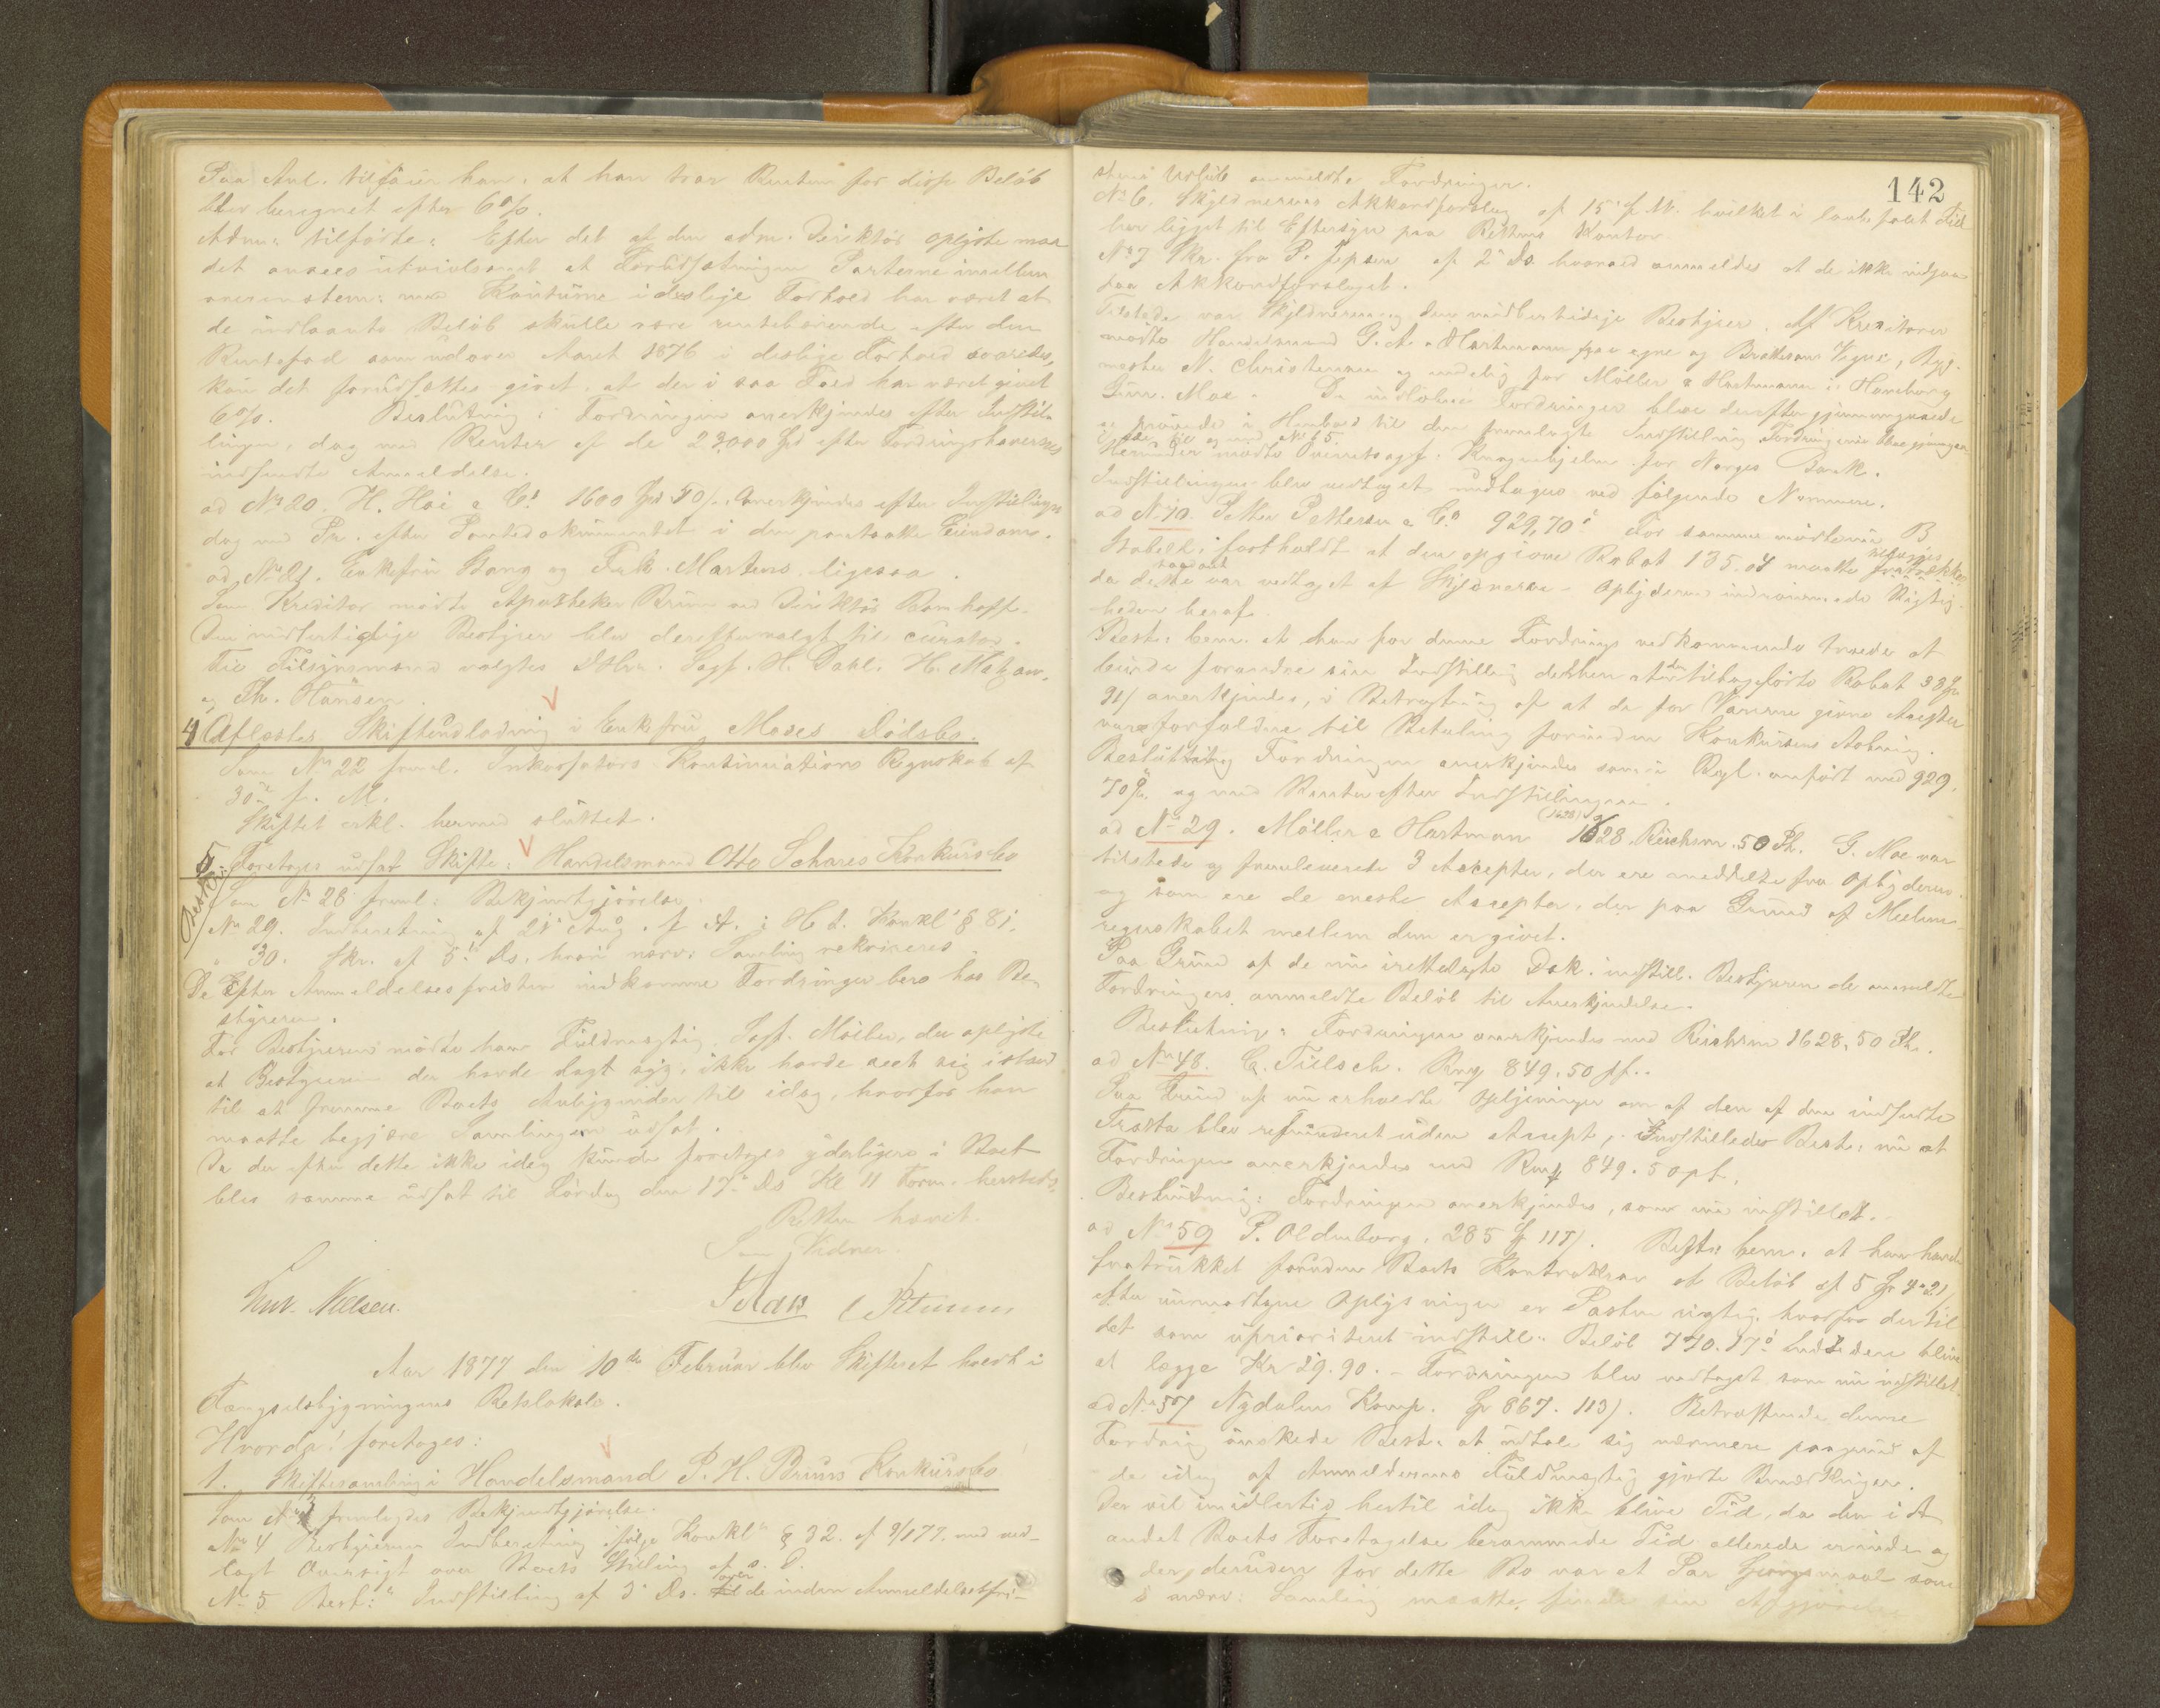 Paa Anl. tilføier han, at han tror Renten for disse Beløb
blev beregnet efter 6%.
Adm: tilførte: Efter det af den adm. Direktør oplyste maa
det ansees utvivlsomt at Forudsætningen Parterne imellem
overenstem: med Kouturne i deslige Forhold har været at
de indlaante Beløb skulle være rentebærende efter den
Rentefod som udover Aaret 1876 i deslige Forhold svaredes,
kan det forudsættes givet, at der i saa Fald har været givet
6%. Beslutning: Fordringen anerkjendes efter Indstil-
lingen, dog med Renter af de 23,000 Spd efter Fordringshaverens
indsendte Anmeldelse.
ad No 20. H. Hoe & Co. 1600 Spd 50/. Anerkjendes efter Indstillingen
dog med Pr. efter Pantedokumentet i den pantsatte Eiendom.
ad No 21. Enkefru Bang og Frk. Martens ligesaa.
Som Kreditor mødte Apotheker Bruun ved Direktør Bomhoff.
Den midlertidige Bestyrer blev derefter valgt til curator.
Til Tilsynsmænd valgtes DHrr. Sagf. H. Dahl, H. Matzow,
og Th. Hansen.
4 Aflæstes Skifteudlodning i Enkefru Moses Dødsbo.
Som No 22 freml. Inkassators Kontinuations Regnskab af
30te f. M.
Skiftet erkl. hermed sluttet.
5. Foretoges udsat Skifte: Handelsmand Otto Schares Konkursbo
Beskr.
Som No 28 freml: Bekjendtgjørelse.
No 29. Indberetning af 21' Aug. f. A. i H. t. Konkl' § 81.
" 30. Skr. af 5' Ds. hvori nærv: Samling rekvireres
De Efter Anmeldelsesfristen indkomne Fordringer bero hos Be-
styreren.
For Bestyreren mødte hans Fuldmægtig, Sagf. Møller, der oplyste
at Bestyreren der havde lagt syg, ikke havde seet sig istand
til at fremme Boets Anliggender til idag, hvorfor han
maatte begjære Samlingen udsat.
Da der efter dette ikke idag kunde foretages yderligere i Boet
blev samme udsat til Lørdag den 17' Ds Kl 11 Form. hersteds.
Retten hævet.
Som Vidner
Chr. Nielsen.
Aar 1877 den 10de Februar blev Skifteret holdt i
Fængselsbygningens Retslokale.
Hvorda! foretoges:
1. Skiftesamling i Handelsmand P. H. Bruns Konkursbo
Som No 3 fremlagdes Bekjendtgjørelse.
No 4 Bestyrerens Indberetning ifølge Konkl" § 32. af 9/1 77. med ved-
lagt Oversigt over Boets Stilling af s. D.
No 5 Best:" Indstilling af 3' Ds. over de inden Anmeldelsesfri-
142
stens Udløb anmeldte Fordringer.
No 6. Skyldnerens Akkordforslag af 15' f. M. hvilket i lovbefalet Tid
har ligget til Eftersyn paa Rettens Kontor.
No 7 Skr. fra P. Jepsen af 2' Ds. hvorved anmeldes at de ikke indgaa
paa Akkordforslaget.
Tilstede var Skyldneren og den midlertidige Bestyrer. Af Kreditorer
mødte Handelsmand G. A. Hartmann paa egne og Brattesens Vegne, Byg-
mester N. Christensen og endelig for Møller & Hartmann i Hamburg
Gunn. Moe. De indløbne Fordringer bleve derefter gjennemgaaede
og prøvede i Henhold til den fremlagte Indstilling. Fordringerne bleve gjennemgaa-
ede til og med No 65.
Herunder mødte Overretssagf. Ragnehjelm for Norges Bank.
Indstillingen blev vedtaget undtagen ved følgende Nummere.
ad No 10. Petter Pettersen & Co. 929,70ø For samme mødte nu B
Isabell: fastholdt at den opgivne Rabat 135.04 maatte fratrækkes
da dette var vedtaget af Skyldneren - Opbyderen indrømmede Rigtig-
heden heraf.
Best: bem. at han for denne Fordrings vedkommende troede at
burde forandre sin Indstilling derhen at den tilbageførte Rabat 33 Spd
91/ anerkjendes, i Betragtning af at de for Varerne givne Accepter
vare forfaldne til Betaling forinden Konkursens Aabning.
Beslutning Fordringen anerkjendes som i Regl. anført med 929.
70ø. og med Renter efter Indstillingen.
(1628)
ad No 29. Møller & Hartman 1628. Reichsm. 50 Ph. G. Moe var
tilstede og fremleverede 3 Accepter, der ere meddelte fra Opbyderen
og som ere de eneste Accepter, der paa Grund af Mellem-
regnskabet mellem dem er givet.
Paa Grund af de nu irettelagte Dok. indstill. Bestyreren de anmeldte
Fordringers anmeldte Beløb til Anerkjendelse.
Beslutning: Fordringen anerkjendes med Reichsm 1628,50 Ph.
ad No 48. C. Tielsch. Rmy 849.50 pf..
Paa Grund af nu erholdte Oplysninger om at den af dem indsendte
Tratta blev refunderet uden Accept, Indstilledes Best: nu at
Fordringen anerkjendes med Rmy 849.50 pf.
Beslutning: Fordringen anerkjendes, som nu indstillet.
ad No 59 P. Oldenborg, 285 Sp 117/. Best: bem. at han havde
fratrukket foruden Boets Kontrakrav et Beløb af 5 Sp 4" 21/
efter nærmere Oplysninger er Posten rigtig, hvorfor dertil
det som uprioriteret indstill: Beløb 770.17ø endvidere blive
at lægge Kr 29.90. - Fordringen blev vedtaget som nu indstillet.
ad No 57 Nydalens Komp. Sp 867. 113/. Betræffende denne
Fordring ønskede Best: at udtale sig nærmere paagrund af
de idag af Anmelderens Fuldmægtig gjorte Bemærkninger.
Der vil imidlertid hertil idag ikke blive Tid, da den i et
andet Boets Foretagelse berammede Tid allerede er inde og
der desuden for dette Bo var et Par Spørgsmaal som
i nærv: Samling maatte finde sin Afgjørelse